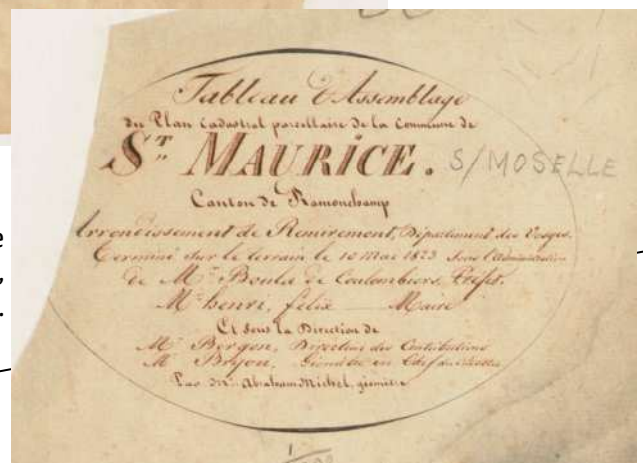 Tableau d'Assemblage
du Plan cadastral parcellaire de la Commune de
ST. MAURICE. S/MOSELLE
Canton de Ramonchamp
Arrondissement de Remiremont, Département des Vosges.
Terminé sur le terrain le 10 Mai 1823 Sous l'Administration
de Mr. Boula de Coulombiers, Préfet.
Mr. henri, félix Maire
Et sous la Direction de
Mr. Bergon, Directeur des Contributions
Mr. Géomètre en Chef du Cadastre
Par Mr. Abraham Michel, géomètre
e
,
.
1